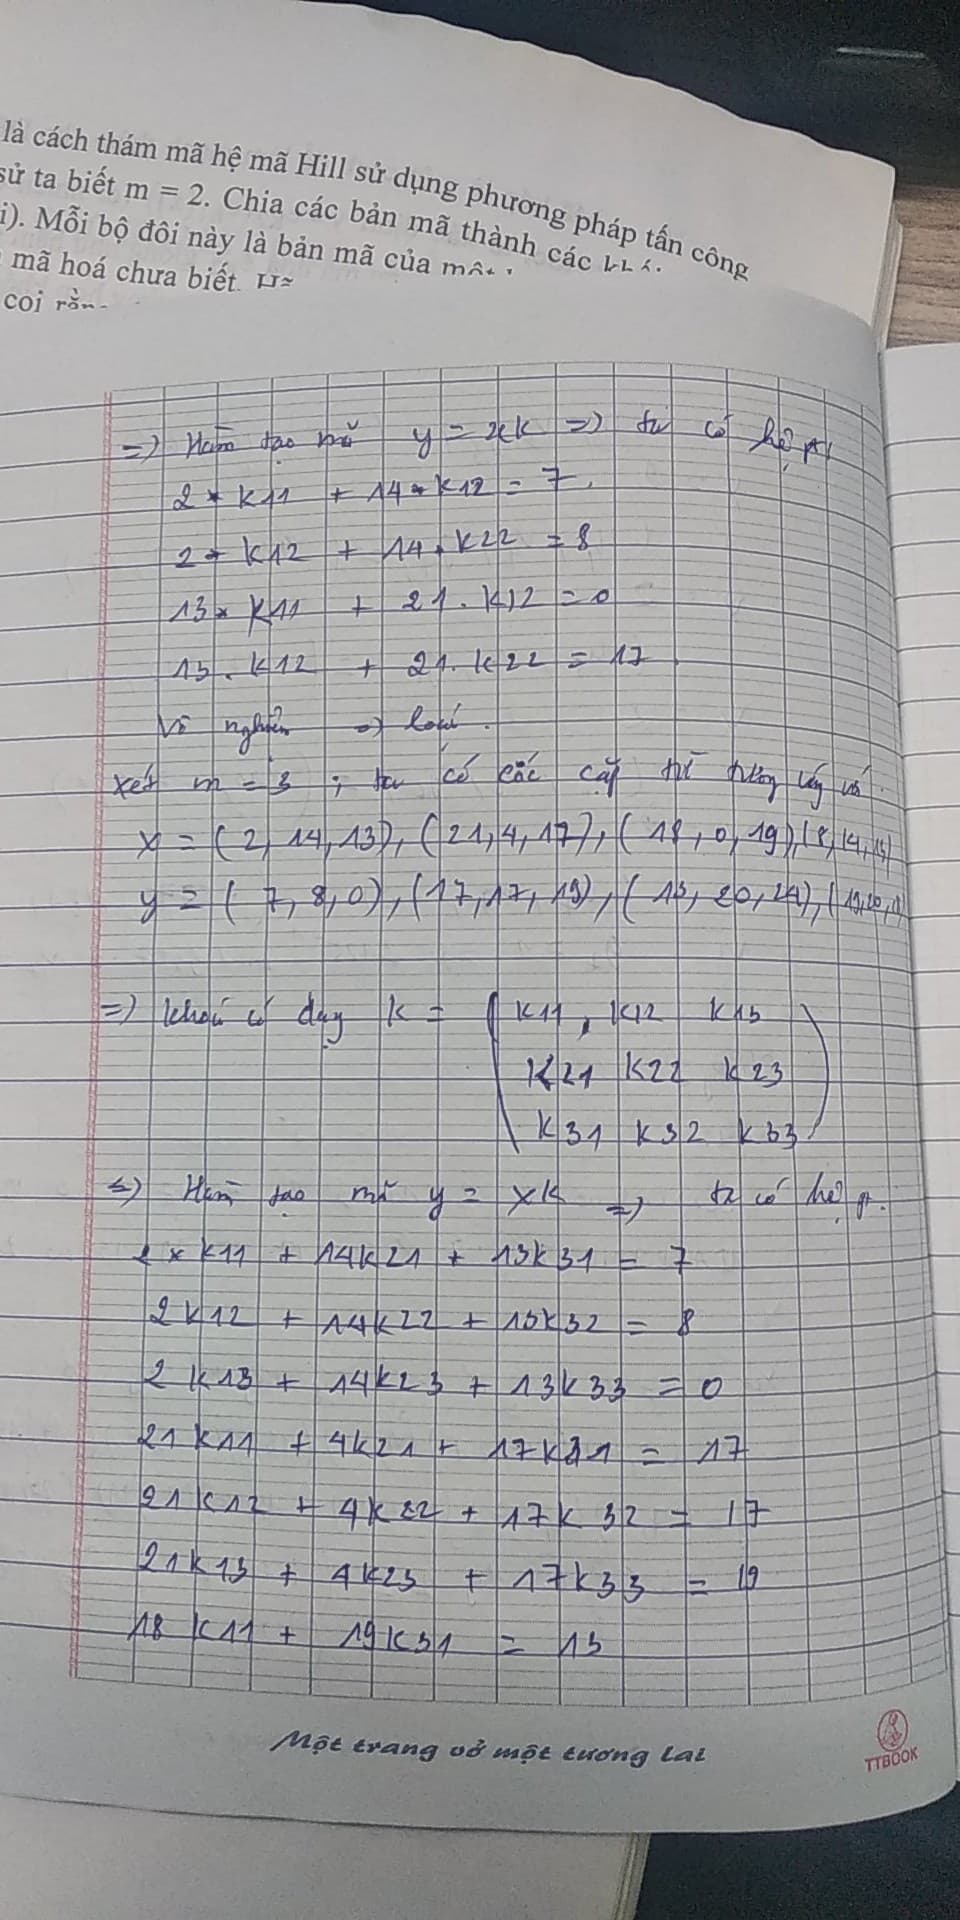 là cách thám mã hệ mã Hill sử dụng phương pháp tấn công
sử ta biết m = 2. Chia các bản mã thành các
i). Mỗi bộ đôi này là bản mã của một
mã hoá chưa biết.
coi rằng
=> Hàm tạo mã y = xk => ta có hệ pt
2 * k11 + 14 * k12 = 7
2 * k12 + 14 . k22 = 8
13 * k11 + 21 . k12 = 0
13 . k12 + 21 . k22 = 17
Vô nghiệm => loại.
xét m = 3 ; ta có các cặp từ tương ứng
x = (2, 14, 13), (21, 4, 17), (18, 0, 19), (8, 14, 13)
y = (7, 8, 0), (17, 17, 19), (13, 20, 24), (19, 20,
=> khoá có dạng k = ( k11, k12 k13
k21 k22 k23
k31 k32 k33 )
=> Hàm tạo mã y = xk => ta có hệ pt.
2 x k11 + 14k21 + 13k31 = 7
2k12 + 14k22 + 13k32 = 8
2 k13 + 14k23 + 13k33 = 0
21 k11 + 4k21 + 17k31 = 17
21 k12 + 4k22 + 17k 32 = 17
21k13 + 4k23 + 17k33 = 19
18 k11 + 19k31 = 13
Một trang vở một tương lai
TTBOOK